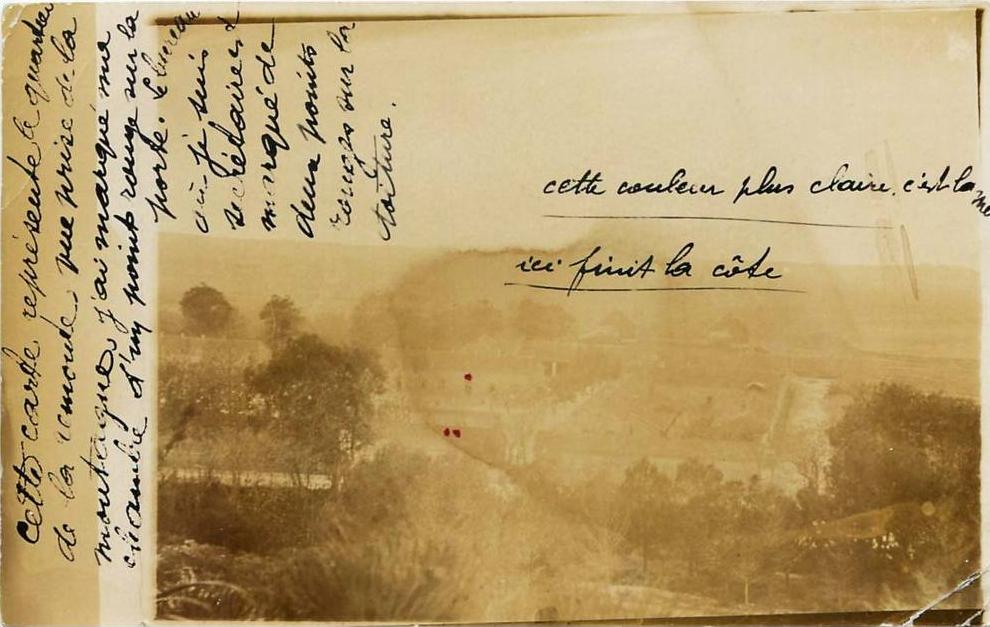 Cette carte représente le quartier
de la remonte, vue prise de la
montagne, j'ai marqué ma
chambre d'un point rouge sur la
porte. Le bureau
où je suis
secrétaire est
marqué de
deux points
rouges sur la
toiture.
cette couleur plus claire, c'est la mer
ici finit la côte